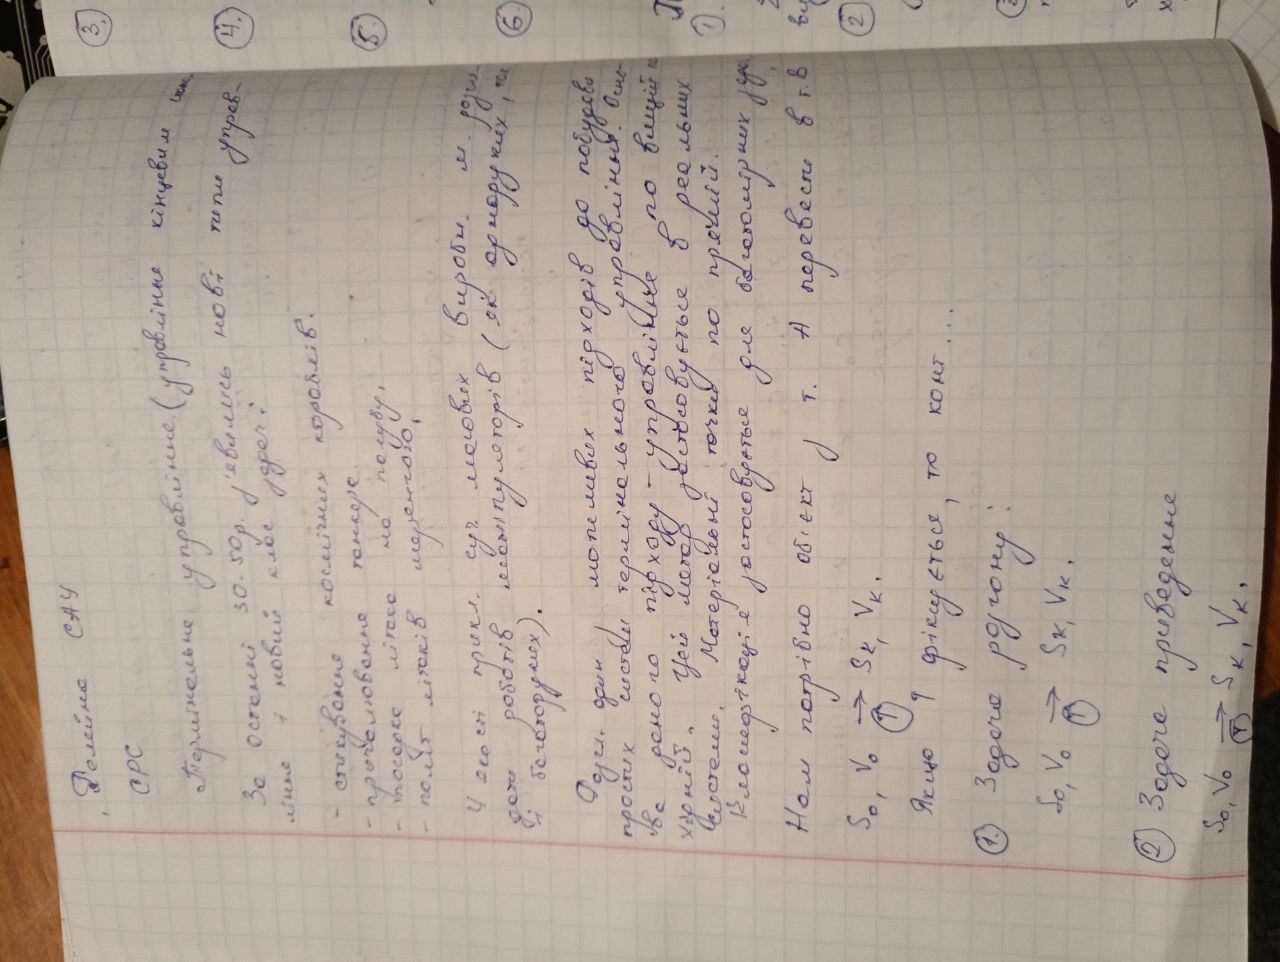 Релейна САУ
СРС
Термінальне управління (управління кінцевим
За останні 30-50р. з'явились нові типи управ-
ління і новий клас задач:
- стикування космічних кораблів.
- причалювання танкера.
- посадка літака на палубу,
- політ літаків
У якості прикл. суч. масових виробн. м. розгля-
дати роботів маніпуляторів (як одноруких, так
і багаторуких).
Розгл. один з можливих підходів до побудови
простих систем термінального управління. Осно-
ва даного підходу - управління по вищій по
хідній. Цей метод застосовується в реальних
системи. Матеріальні точки по прямій.
Класифікація застосовується для багатомірних задач
Нам потрібно об'єкт з т. А перевести в т. В
S₀, V₀ →(T) Sк, Vк.
Якщо T фіксується, то конт...
1. Задача розгону:
S₀, V₀ →(T) Sк, Vк.
2 Задача приведення
S₀, V₀ →(T) Sк, Vк.
3.
4.
5.
6.
1.
2
3